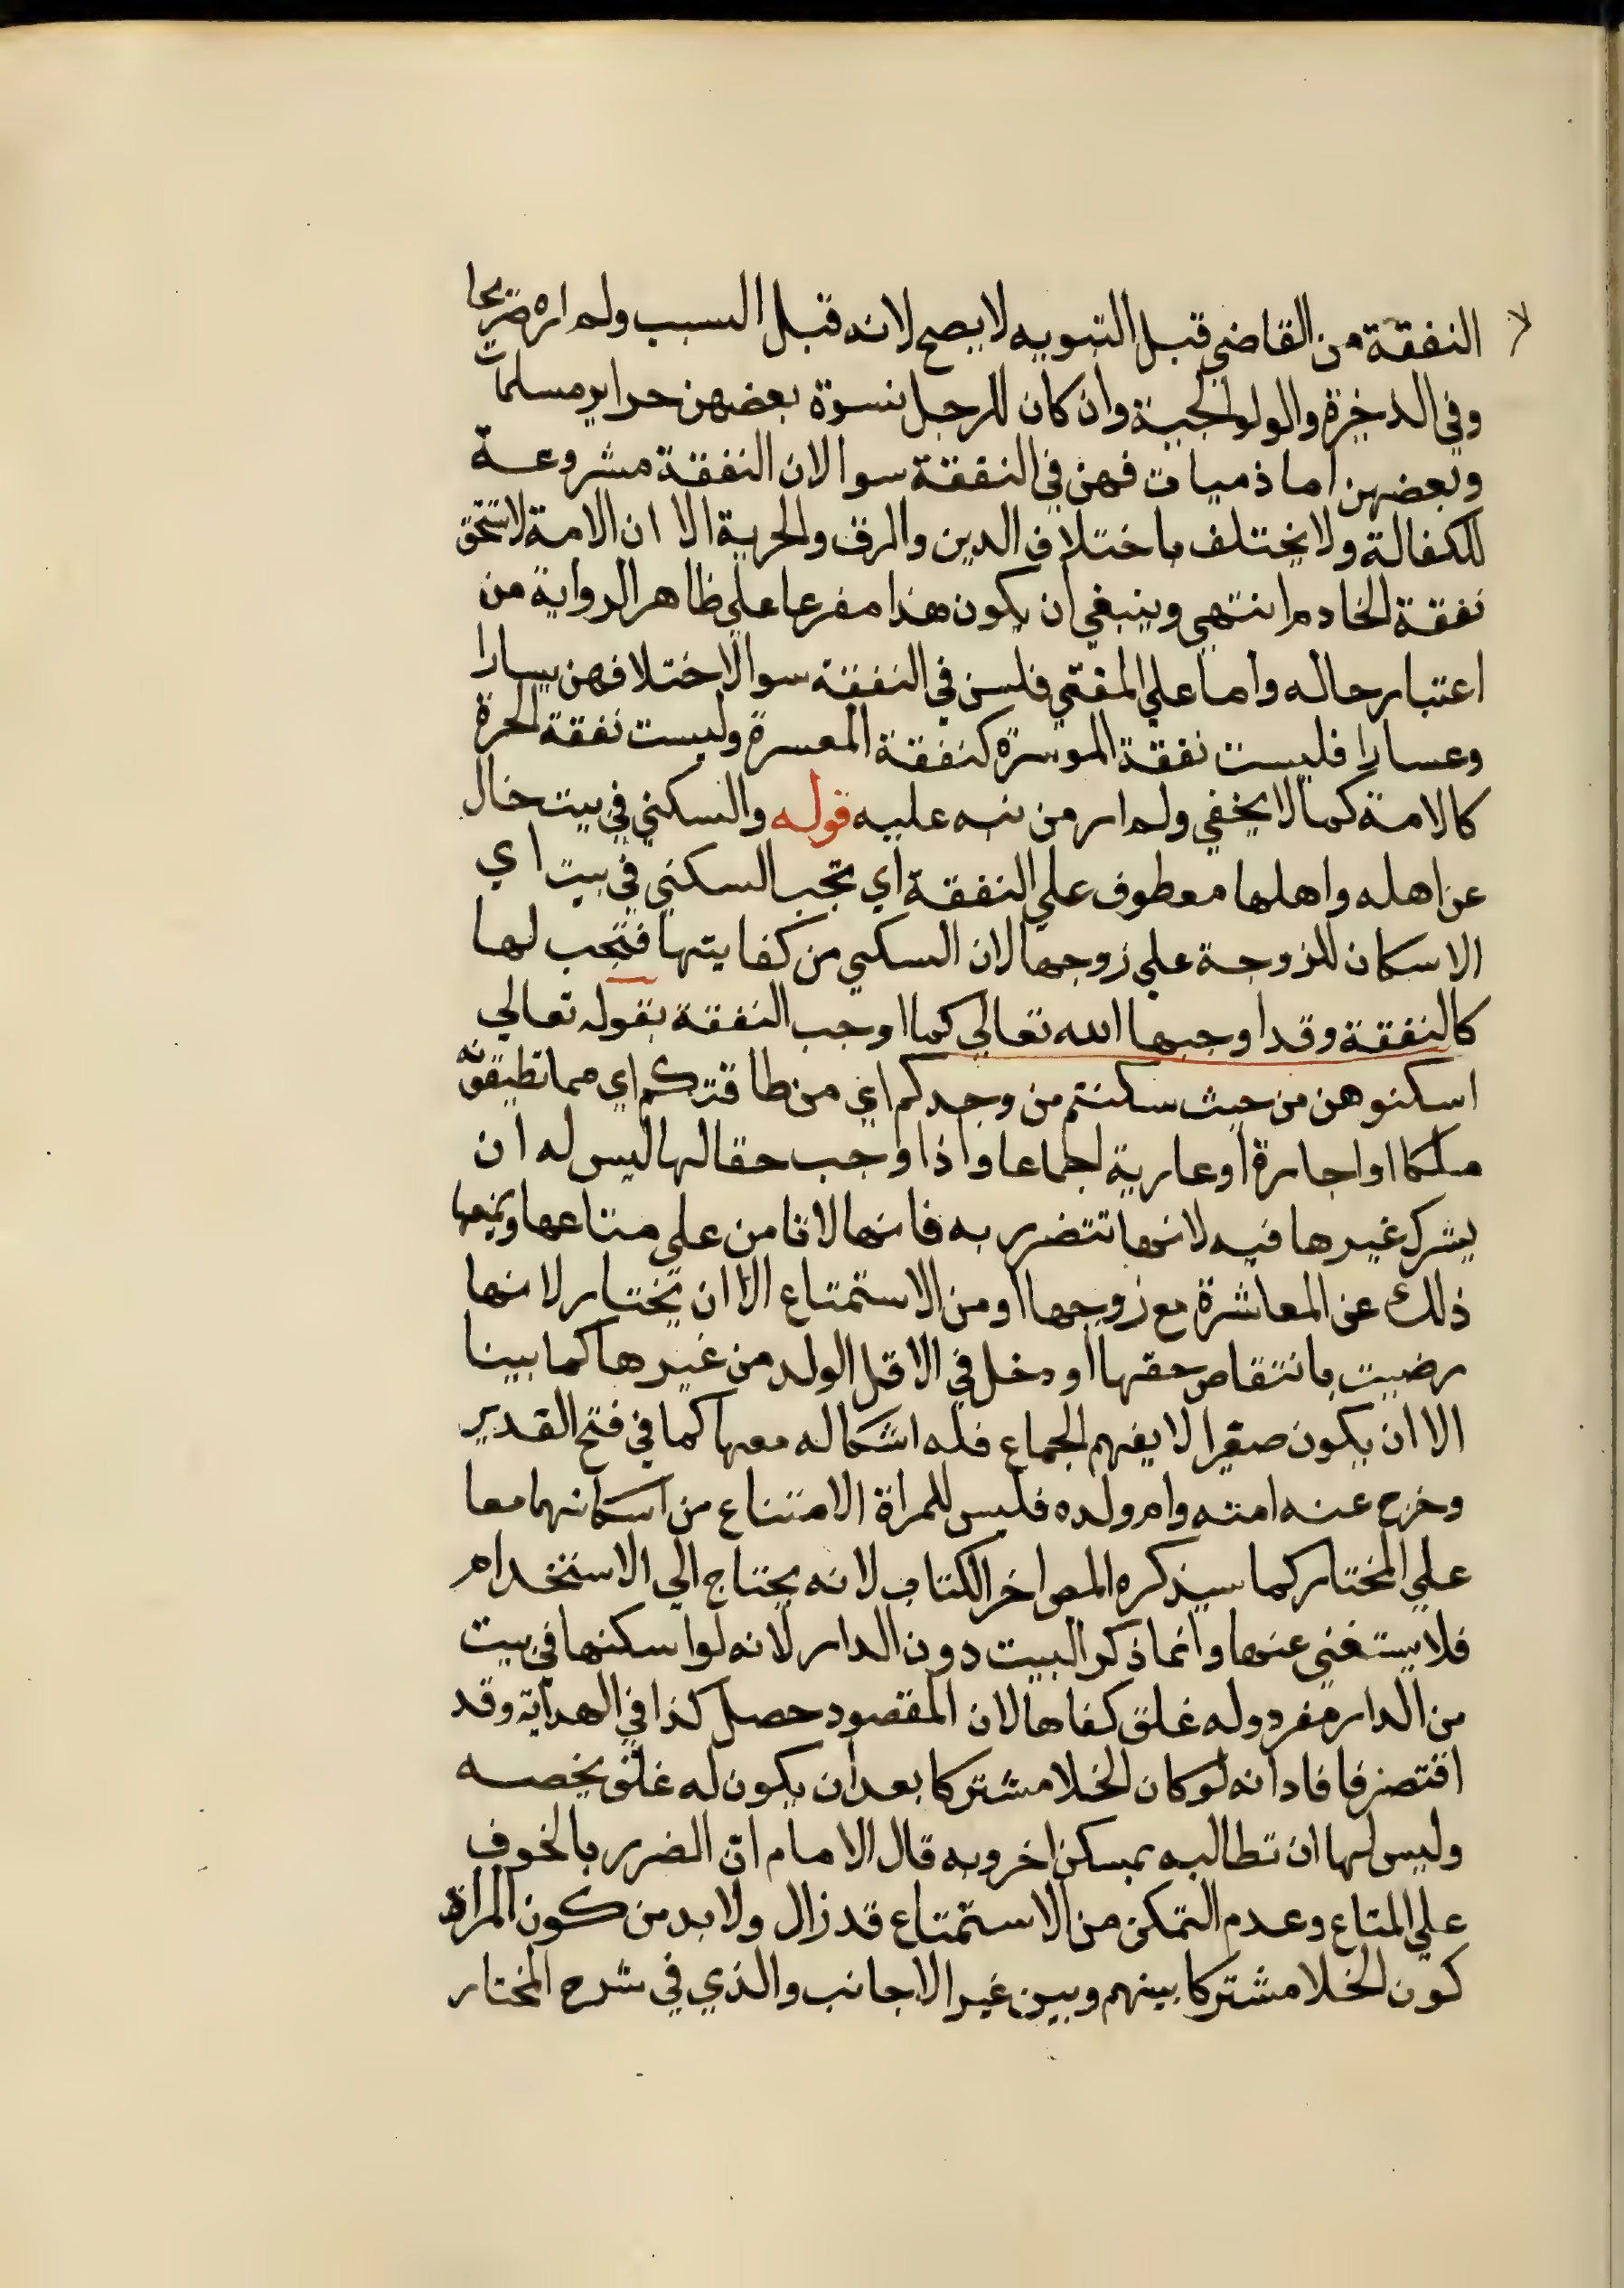 النفقة من القاضي قبل التبويه لا يصح لانه قبل السبب ولم اره صريحا
وفي الدخيرة والولوالجية وان كان للرجل نسوة بعضهن حراير مسلمات
وبعضهن اما ذميات فهن في النفقة سوا لان النفقة مشروعة
للكفالة ولا يختلف باختلاف الدين والرق والحرية الا ان الامة لا تستحق
نفقة الخادم انتهي وينبغي ان يكون هذا مفرعا علي ظاهر الرواية من
اعتبار حاله واما علي المفتي فلسن في النفقة سوا لاختلافهن يسارا
وعسارا فليست نفقة الموسرة كنفقة المعسرة وليست نفقة الحرة
كالامة كما لا يخفي ولم ار من نبه عليه قوله والسكني في بيت خال
عن اهله واهلها معطوف علي النفقة اي تجب السكني في بيت اي
الاسكان للزوجة علي زوجها لان السكني من كفايتها فتجب لها
كالنفقة وقد اوجبها الله تعالي كما اوجب النفقة بقوله تعالي
اسكنوهن من حيث سكنتم من وجدكم اي من طاقتكم اي مما تطيقونه
ملكا او اجارة او عارية اجماعا واذا وجب حقا لها ليس له ان
يشرك غيرها فيه لانها تتضرر به فانها لا تامن علي متاعها ويمنعها
ذلك عن المعاشرة مع زوجها او من الاستمتاع الا ان تختار لانها
رضيت بانتقاص حقها او دخل في الاقل الولد من غيرها كما بينا
الا ان يكون صغيرا لا يفهم الجماع فله اشكاله معها كما في فتح القدير
وخرج عنه امته وام ولده فليس للمراة الامتناع من اسكانهما معا
علي المختار كما سيذكره المص اخر الكتاب لانه يحتاج الي الاستخدام
فلا يستغني عنها وانما ذكر البيت دون الدار لانه لو اسكنها في بيت
من الدار مفرد وله غلق كفاها لان المقصود حصل كذا في الهداية وقد
اقتصر فافاد انه لو كان الخلا مشتركا بعد ان يكون له غلق يخصه
وليس لها ان تطالبه بمسكن اخر وبه قال الامام ان الضرر بالخوف
علي المتاع وعدم التمكن من الاستمتاع قد زال ولا بد من كون المراة
كون الخلا مشتركا بينهم وبين غير الاجانب والذي في شرح المختار